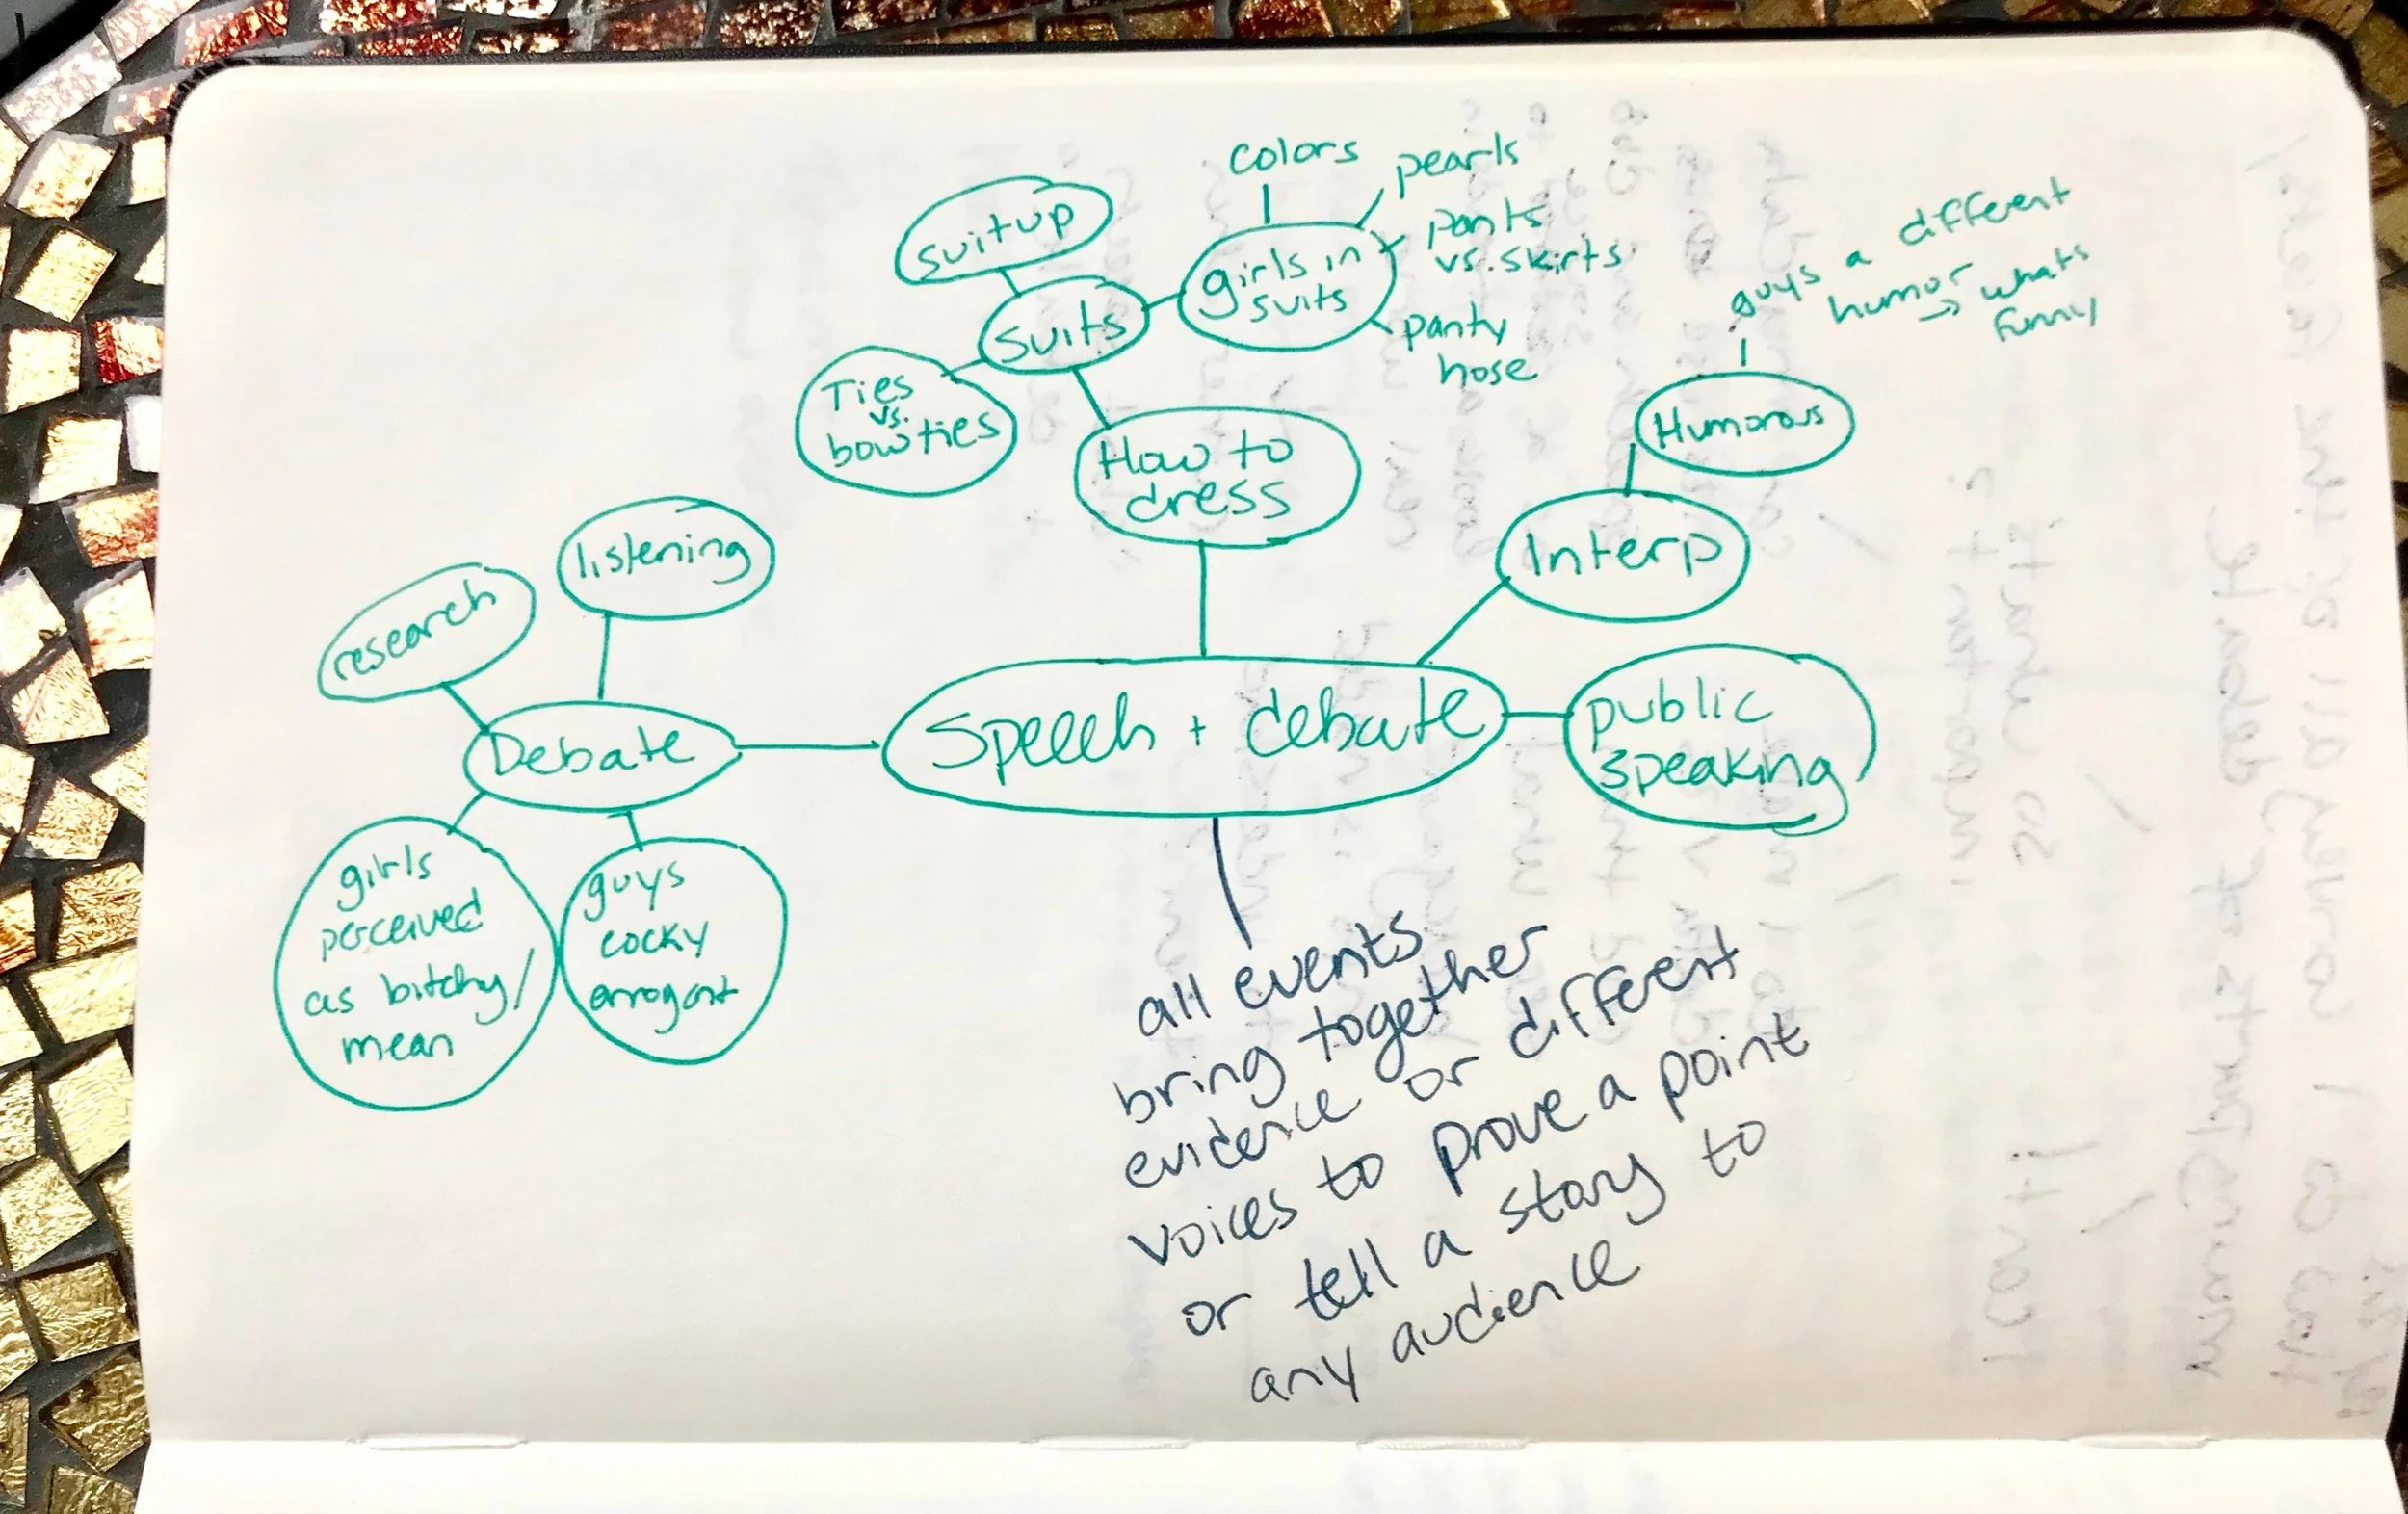 colors
pearls
pants
vs. skirts
panty
hose
girls in
suits
suit up
suits
Ties
vs.
bowties
How to
dress
guys a different
humor → whats
funny
Humorous
Interp
listening
research
Debate
Speech + debate
public
speaking
girls
perceived
as bitchy/
mean
guys
cocky
arrogant
all events
bring together
evidence or different
voices to prove a point
or tell a story to
any audience